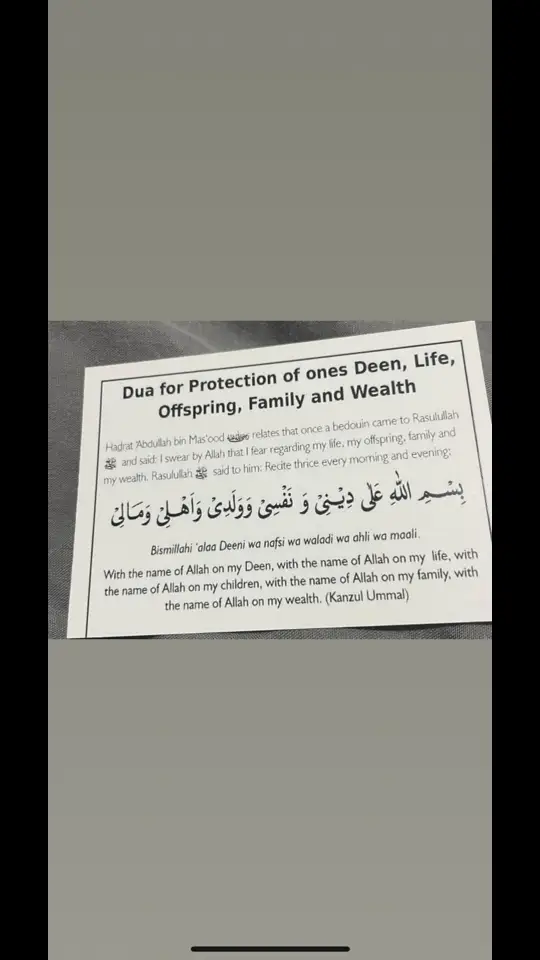 Dua for Protection of ones Deen, Life,
Offspring, Family and Wealth
Hadrat 'Abdullah bin Mas'ood relates that once a bedouin came to Rasulullah
ﷺ and said: I swear by Allah that I fear regarding my life, my offspring, family and
my wealth. Rasulullah ﷺ said to him: Recite thrice every morning and evening:
بِسْمِ اللّٰهِ عَلٰى دِيْنِىْ وَ نَفْسِىْ وَوَلَدِىْ وَاَهْلِىْ وَمَالِىْ
Bismillahi 'alaa Deeni wa nafsi wa waladi wa ahli wa maali.
With the name of Allah on my Deen, with the name of Allah on my life, with
the name of Allah on my children, with the name of Allah on my family, with
the name of Allah on my wealth. (Kanzul Ummal)